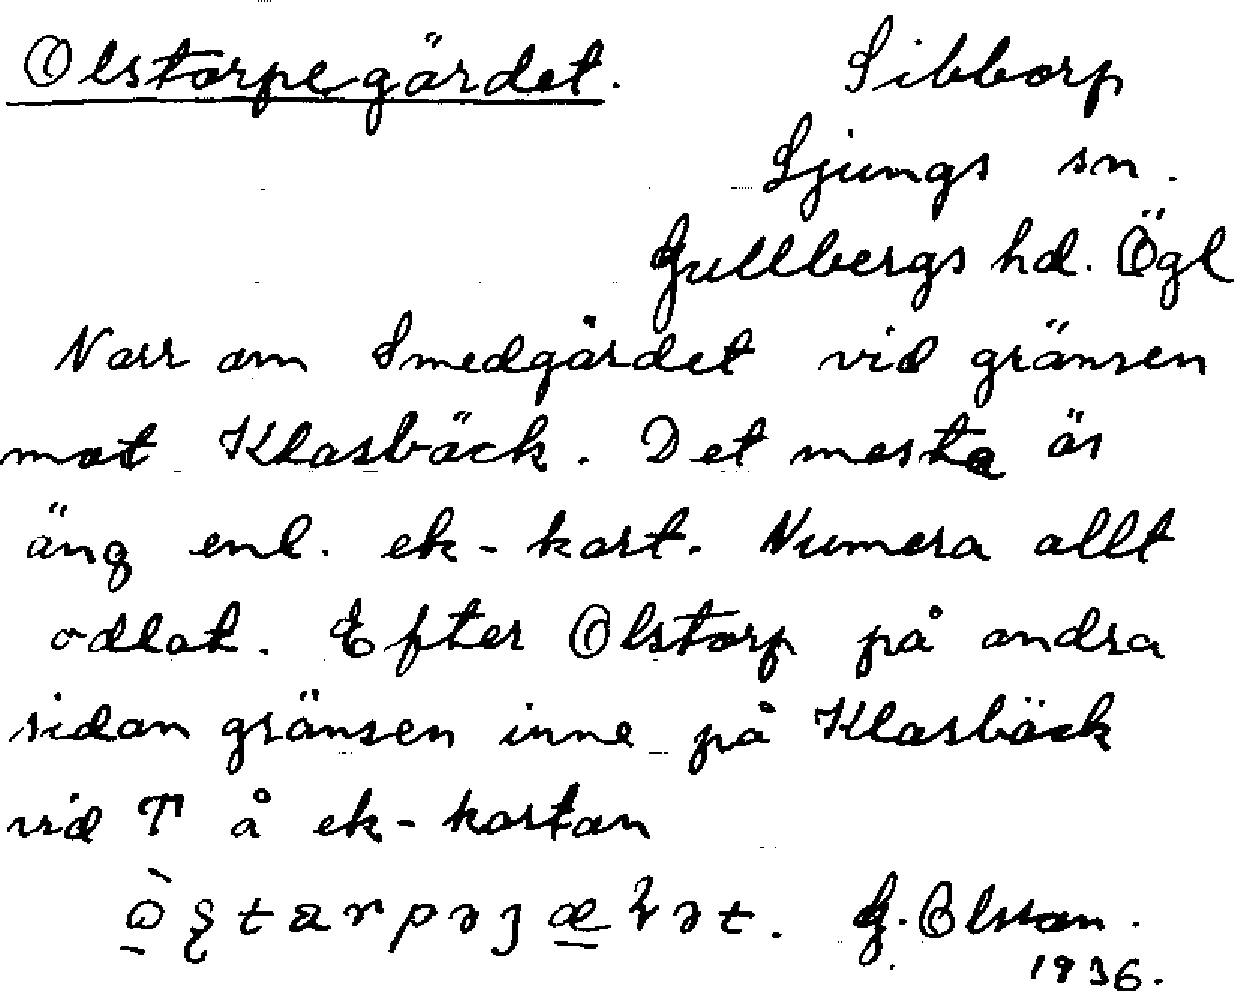 Olstorpegärdet. Sibborp
Ljungs sn.
Gullbergs hd. Ögl
Norr om Smedgärdet vid gränsen
mot Klasbäck. Det mesta är
äng enl. ek-kart. Numera allt
odlat. Efter Olstorp på andra
sidan gränsen inne på Klasbäck
vid T å ek-kartan
G. Olsson.
1936.